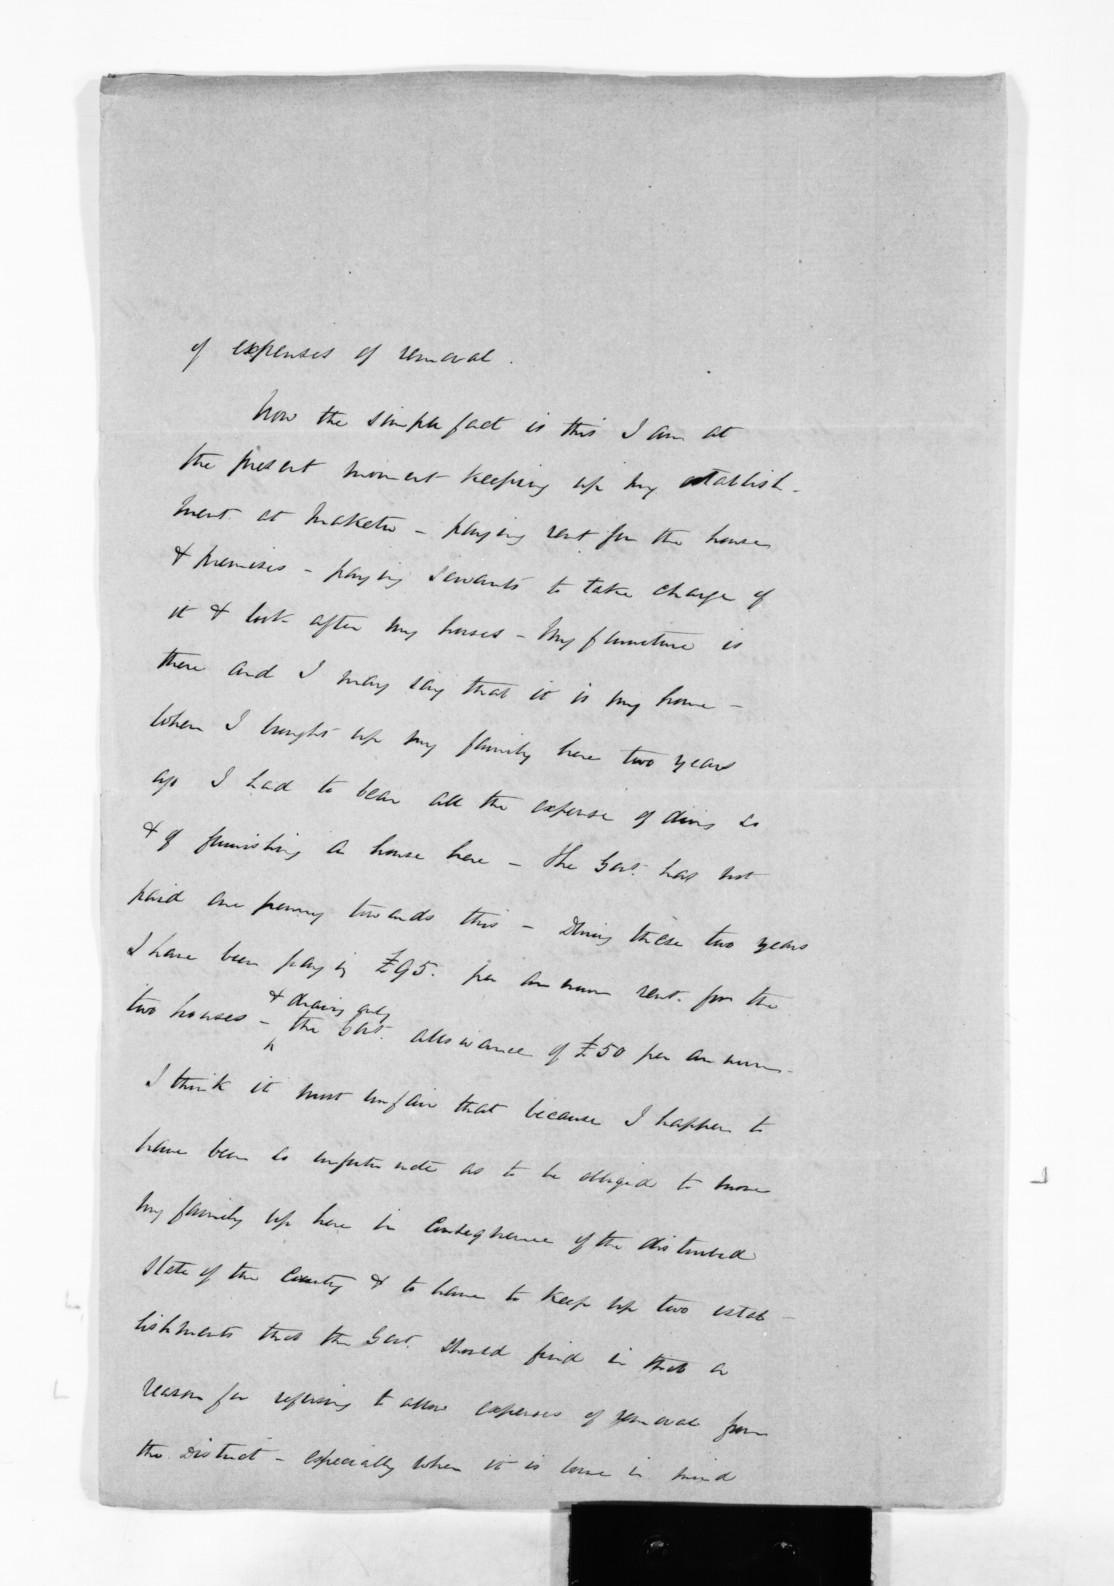 of expenses of removal.
Now the simple fact is this I am at
the present moment keeping up my establish-
ment at Maketu - paying rent for the house
& premises - paying servants to take charge of
it & look after my horses - My furniture is
there and I may say that it is my home -
When I brought up my family here two years
ago I had to bear all the expense of doing so
& of furnishing a house here - The Govt. has not
paid one penny towards this - During these two years
I have been paying £95. per annum rent for the
two houses - & drawing only the Govt. allowance of £50 per annum -
I think it most unfair that because I happen to
have been so unfortunate as to be obliged to move
my family up here in consequence of the disturbed
state of the Country & to have to keep up two estab-
lishments that the Govt. should find in that a
reason for refusing to allow expenses of removal from
the District - especially when it is borne in mind